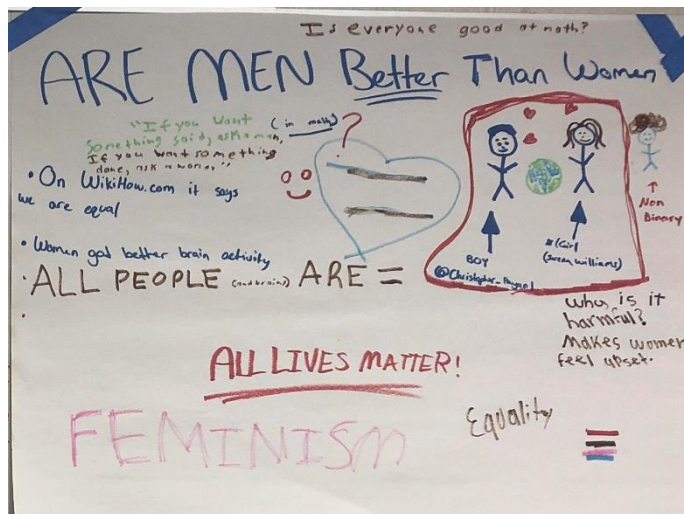 Is everyone good at math?
ARE MEN Better Than Women
(in math)
?
"If you want
something said, ask a man,
If you want something
done, ask a woman."
• On WikiHow.com it says
we are equal
• Women got better brain activity
• ALL PEOPLE (and brains) ARE =
BOY
Girl
Non
Binary
why is it
harmful?
Makes women
feel upset.
ALL LIVES MATTER!
FEMINISM
Equality